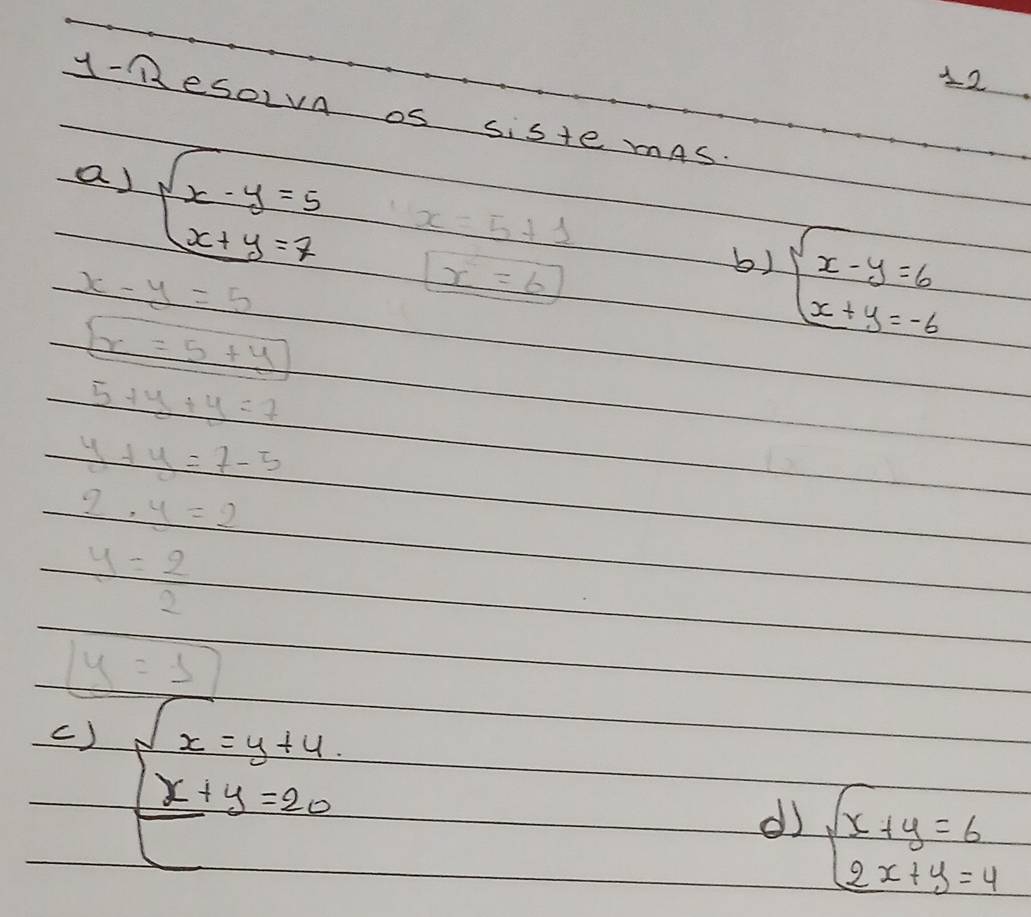 12
1-Resolva os sistemas.
a) x - y = 5
x + y = 7
x - y = 5
x = 5 + y
5 + y + y = 7
y + y = 7 - 5
2 . y = 2
y = 2/2
y = 1
x = 5 + 1
x = 6
b) x - y = 6
x + y = -6
c) x = y + 4.
x + y = 20
d) x + y = 6
2x + y = 4